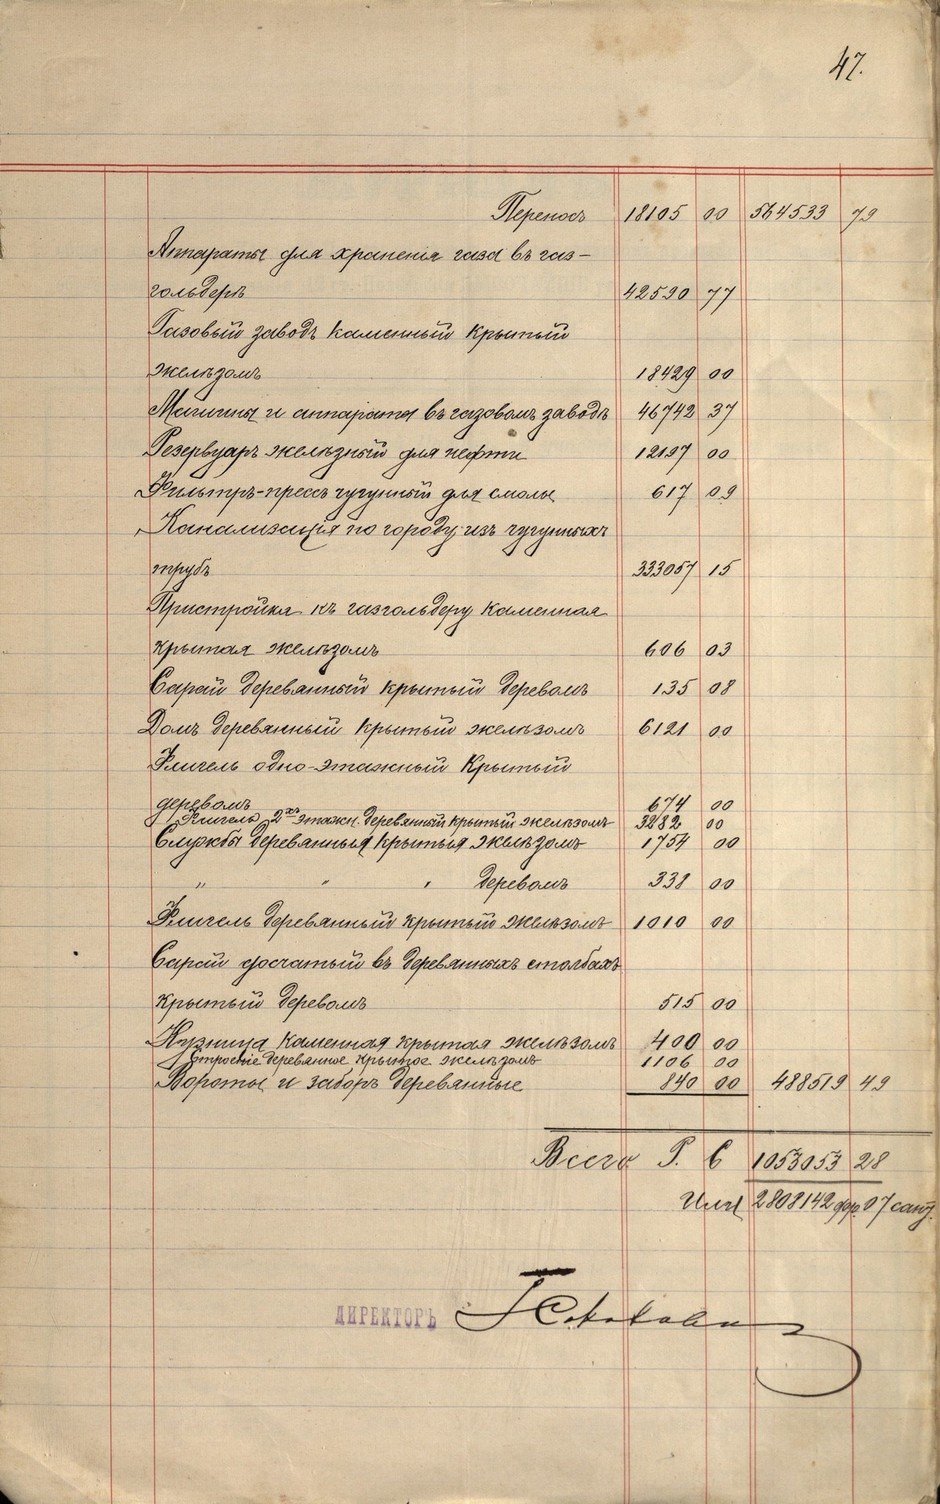 47.
Переносъ 18105 00 564533 79
Аппараты для храненія газа въ газ-
гольдерѣ 42590 77
Газовый заводъ каменный крытый
желѣзомъ 18429 00
Машины и аппараты въ газовомъ заводѣ 46742 37
Резервуаръ желѣзный для нефти 12197 00
Фильтръ-прессъ чугунный для смолы 617 09
Канализація по городу изъ чугунныхъ
трубъ 333057 15
Пристройка къ газгольдеру каменная
крытая желѣзомъ 606 03
Сарай деревянный крытый деревомъ 135 08
Домъ деревянный крытый желѣзомъ 6121 00
Флигель одно-этажный крытый
деревомъ 674 00
Флигель 2хъ этажн. деревянный крытый желѣзомъ 3282 00
Службы деревянныя крытыя желѣзомъ 1754 00
" " " деревомъ 338 00
Флигель деревянный крытый желѣзомъ 1010 00
Сарай досчатый въ деревянныхъ столбахъ
крытый деревомъ 515 00
Кузница каменная крытая желѣзомъ 400 00
Строеніе деревянное крытое желѣзомъ 1106 00
Вороты и заборъ деревянные 840 00 488519 49
Всего Р. С 1053053 28
Или 2808142 фр. 07 сант.
ДИРЕКТОРЪ